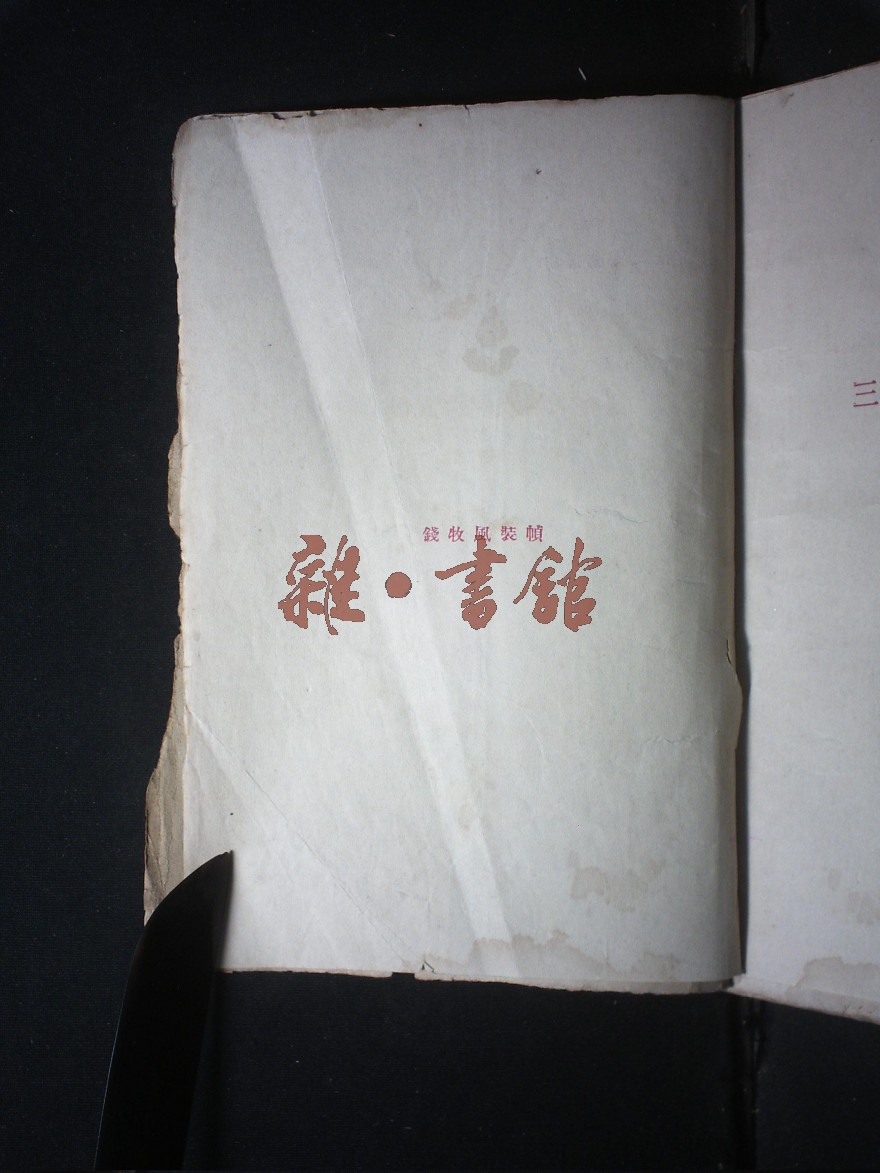 錢牧風裝幀
雜●書館